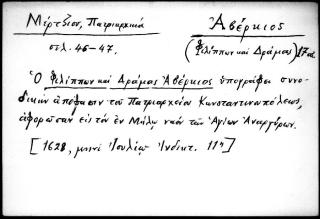 Μέρτζιος, Πατριαρχικά
Ἀβέρκιος
σελ. 46-47.
(Φιλίππων καὶ Δράμας) 17 αἰ.
Ὁ Φιλίππων καὶ Δράμας Ἀβέρκιος ὑπογράφει συνο-
δικὴν ἀπόφασιν τοῦ Πατριαρχείου Κωνσταντινουπόλεως,
ἀφορῶσαν εἰς τὸν ἐν Μήλῳ ναὸν τῶν Ἁγίων Ἀναργύρων.
[1628, μηνὶ Ἰουλίῳ Ἰνδικτ. 11η]